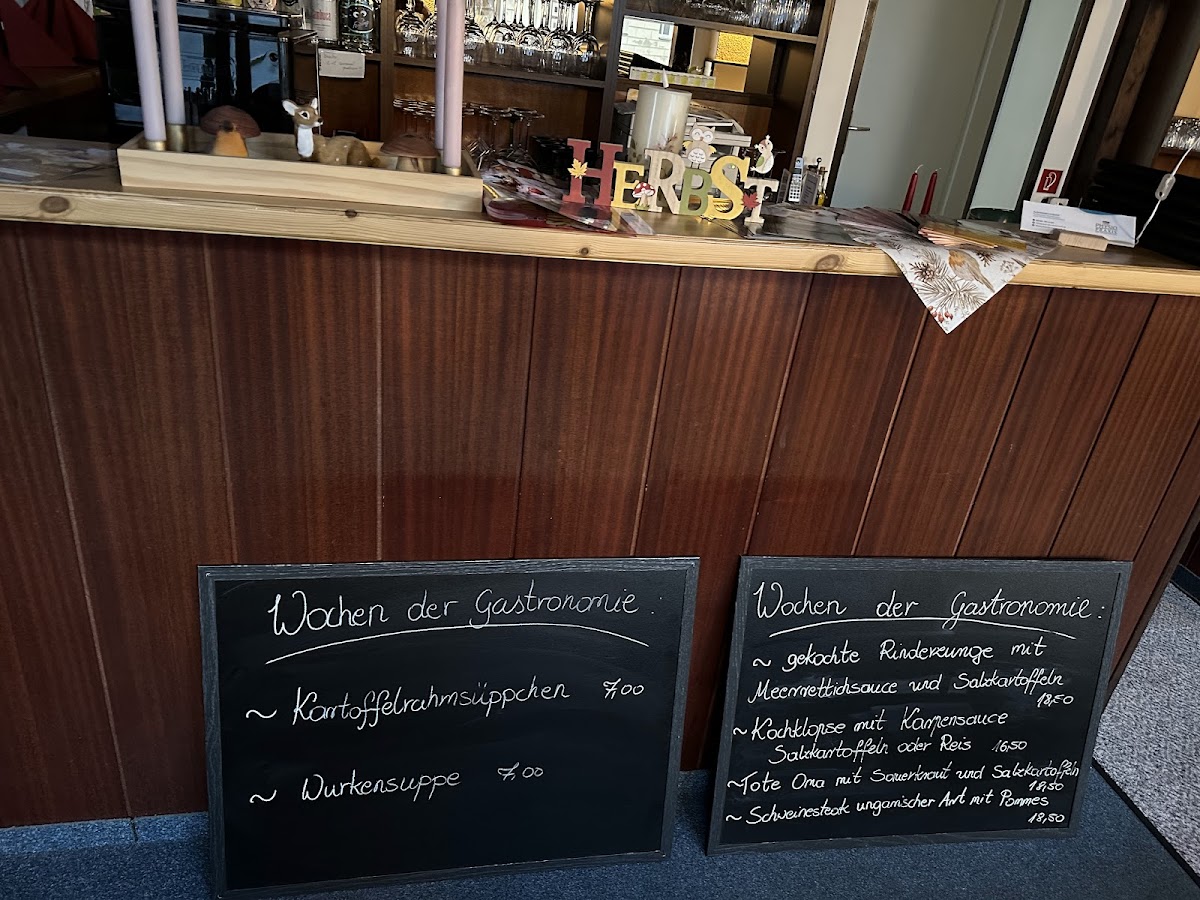 HERBST
Wochen der Gastronomie.
~ Kartoffelrahmsüppchen 7,00
~ Wurkensuppe 7,00
Wochen der Gastronomie:
~ gekochte Rinderzunge mit
Meerrettichsauce und Salzkartoffeln
18,50
~ Kochklopse mit Kapensauce
Salzkartoffeln oder Reis 16,50
~ Tote Oma mit Sauerkraut und Salzkartoffeln
18,50
~ Schweinesteak ungarischer Art mit Pommes
18,50